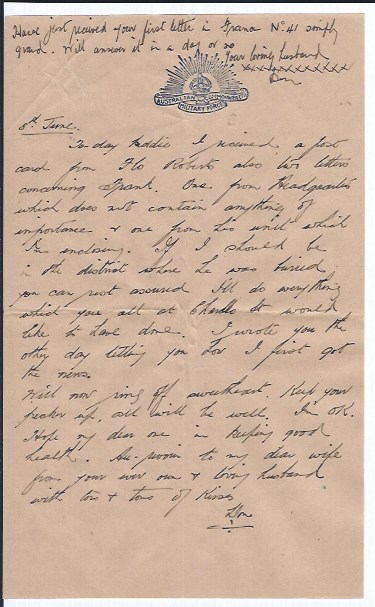 Have just received your first letter in Frame Nº 41 simply
grand. Will answer it in a day or so
Your loving husband
xxxxxxxxxx
Don
AUSTRALIAN COMMONWEALTH
MILITARY FORCES
8th June.
To-day I received a post
card from Flo Roberts also two letters
concerning Frank. One from Headquarters
which does not contain anything of
importance & one from his unit which
I'm enclosing. If I should be
in the district where he was buried
you can rest assured I'll do everything
which you all at Charles St would
like to have done. I wrote you the
other day letting you how I first got
the news.
Will now ring off sweetheart. Keep your
pecker up, all will be well. I'm OK.
Hope my dear one is keeping good
health. Au-revoir to my dear wife
from your ever own & loving husband
with tons & tons of kisses
Don